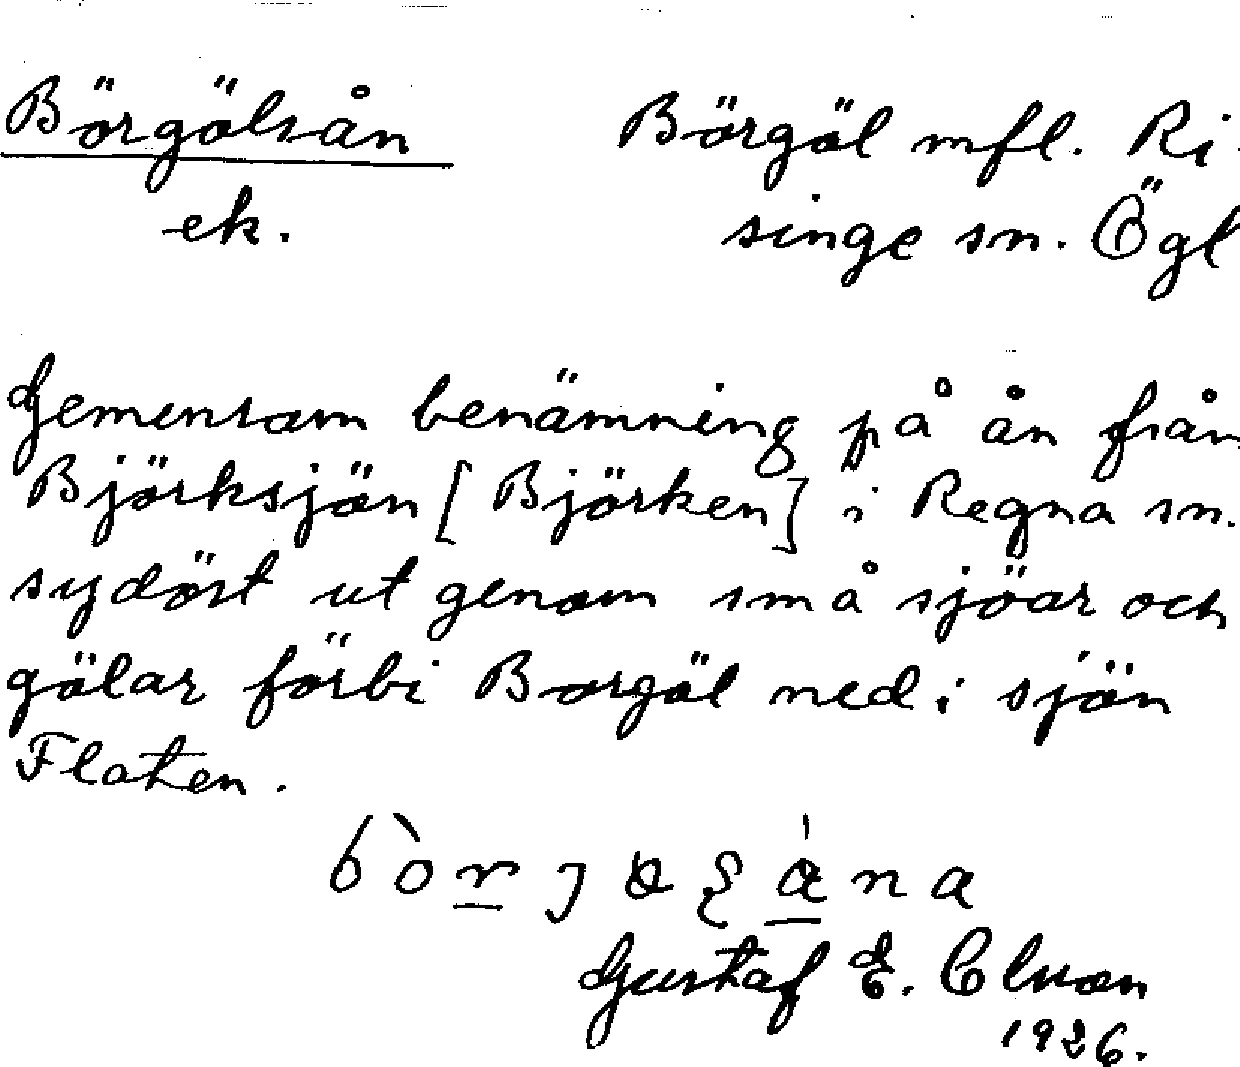 Börgölsån Börgöl mfl. Ri-
ek. singe sn. Ögl
Gemensam benämning på ån från
Björksjön [Björken] i Regna sn.
sydöst ut genom små sjöar och
gölar förbi Borgöl ned i sjön
Flaten.
Gustaf E.
1926.